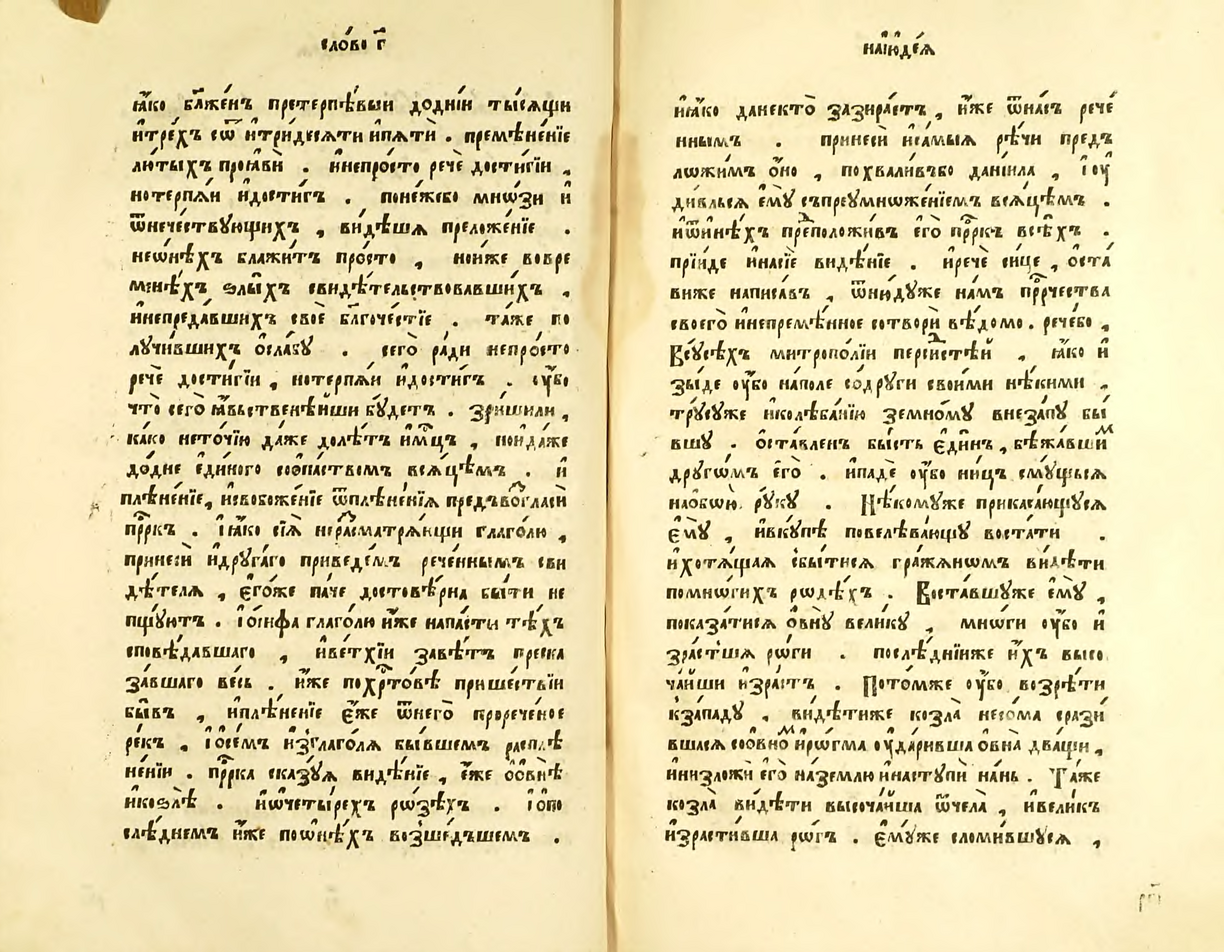 сло́во г҃
ꙗ҆́ко бл҃же́нъ претерпѣ́выи до́днїи ты́сѧщи
и҆трехъ сѡ́т и҆три́десѧти и҆пѧтѝ . премѣне́нїе
лю́тыхъ проꙗвѝ . и҆непро́сто речѐ дости́гїи ,
нотерпѧ́и и҆дости́гъ . поне́жебо мнѡ́зи и҆
ѿнече́ствꙋющихъ , ви́дѣшѧ преложе́нїе .
неѡ҆нѣ́хъ блажи́тъ про́сто , но́иже вовре
мѧнѣ́хъ ѕлы́хъ свидѣ́тельствовавшихъ ,
и҆непреда́вшихъ своѐ бл҃гоче́стїе . та́же по
лꙋчи́вшихъ ѻ҆сла́бꙋ . сего̀ ра́ди непро́сто
речѐ дости́гїи , нотерпѧ́и и҆дости́гъ . ᲂу҆́бо
что̀ сего̀ ꙗ҆́вьственѣ́йши бꙋ́детъ . зри́шили ,
ка́ко нето́чїю да́же долѣ́тъ и҆мц҃ъ , нои҆да́же
до́дне є҆ди́ного соѻпа́ствомъ всѧ́цѣмъ . и҆
плѣне́нїе, исвобоже́нїе ѿплѣне́нїѧ предъвозгласѝ
прⷪ҇ркъ . І҆ꙗ҆́ко сїѧ̀ нерасматрѧ́ющи глаго́лю ,
принесѝ и҆дрꙋга́го приведе́мъ рече́ннымъ сви
дѣ́телѧ , є҆го́же па́че достовѣ́рна бы́ти не
пщꙋ́ютъ . І҆ѡ́сифа глаго́лю и҆́же напа́сти тѣ́хъ
сповѣ́давшаго , и҆ве́тхїи завѣ́тъ преска
за́вшаго ве́сь . и҆́же похрⷭ҇товѣ прише́ствїи
бы́въ , и҆плѣне́нїе є҆́же ѿнего̀ прорече́ное
ре́къ , І҆ѻ҆се́мъ и҆зглаго́лѧ бы́вшемъ расплѣ
не́нїи . прⷪ҇рка сказꙋ́ѧ видѣ́нїе , є҆́же ѻ҆ѻвнѣ̀
и҆коѕлѣ̀ . и҆ѡ҆четы́рехъ ро́зѣхъ . І҆ѻ҆по
слѣ́днемъ и҆́же поѡ҆нѣ́хъ возше́дъшемъ .
наі҆ю҆де́ѧ
и҆ꙗ҆́ко данектѡ̀ зазира́етъ , и҆́же ѿна́съ рече
ннымъ . принесѝ и҆са́мыѧ рѣ́чи предъ
ложимъ ѻ҆́но , похвали́въбо данїи́ла , І҆ᲂу
диви́льсѧ є҆мꙋ̀ съпреꙋмноже́нїемъ всѧ́цѣмъ .
и҆ѿи҆нѣ́хъ преположи́въ є҆го̀ прⷪ҇ркъ всѣ́хъ .
прїи́де и҆насїѐ видѣ́нїе . и҆речѐ си́це , ѻ҆ста
виже написа́въ , ѿню́дꙋже на́мъ прⷪ҇рчества
своего̀ и҆непремѣ́нное сотворѝ вѣ́домо . речебо ,
Всꙋсѣ́хъ митропо́лїи персистѣ́й , ꙗ҆́ко и҆
зы́де ᲂу҆́бо напо́ле содрꙋ́ги свои́ми нѣ́кими ,
трꙋ́сꙋже и҆колѣба́нїю земно́мꙋ внеза́пꙋ бы́
вшꙋ . ѻ҆ста́вленъ бы́сть є҆ди́нъ , бѣжа́вшимⷨ
дрꙋгѡ́мъ є҆го̀ . и҆падѐ ᲂу҆́бо ни́цъ смꙋ́щьсѧ
наѻ҆бѡѝ рꙋ́кꙋ . Нѣ́комꙋже прикаса́ющꙋсѧ
є҆мꙋ̀ , и҆вкꙋ́пѣ повелѣва́ющꙋ воста́ти .
и҆хотѧ́щаѧ сбы́тисѧ гражѧ́номъ ви́дѣти
помно́гихъ родѣ́хъ . Воста́вшꙋже є҆мꙋ̀ ,
показа́тисѧ ѻ҆внꙋ̀ вели́кꙋ , мнѡ́ги ᲂу҆́бо и҆
зра́стшѧ ро́ги . послѣ́днїиже и҆́хъ высо
ча́йши и҆зра́стъ . Пото́мже ᲂу҆́бо возрѣ́ти
кза́падꙋ , ви́дѣтиже козла̀ несо́ма срази
вшасѧ соовно́мⷨ и҆рогма ᲂу҆да́ривша ѻ҆вна̀ два́щи ,
и҆низложѝ є҆го̀ на́землю и҆настꙋпѝ на́нь . Та́же
козла̀ ви́дѣти высоча́йша ѿчела̀ , и҆вели́къ
и҆зрасти́вша ро́гъ . є҆мꙋ́же сломи́вшꙋсѧ ,